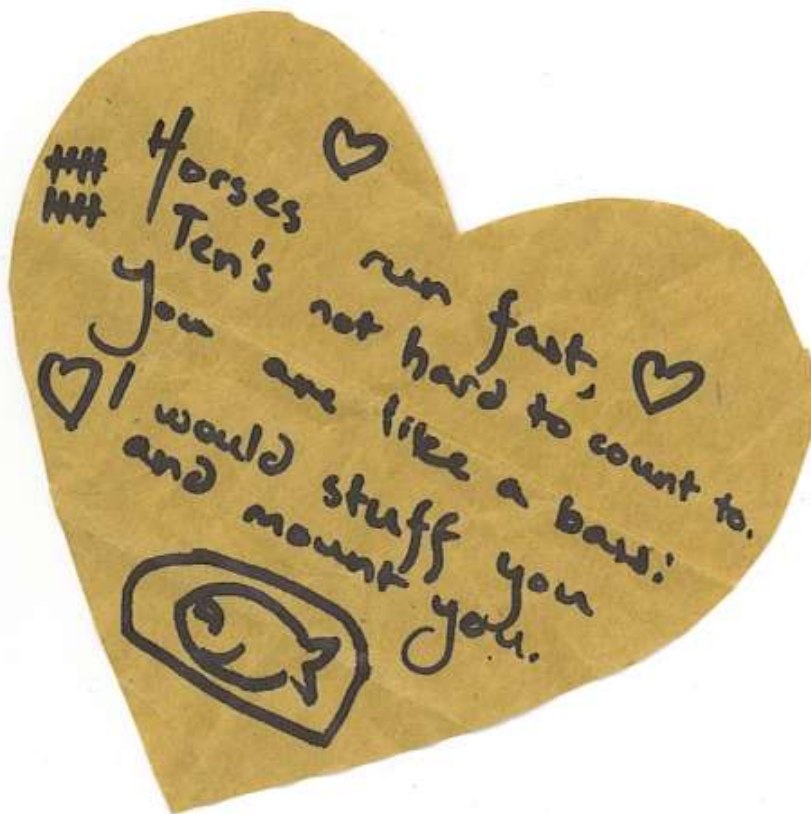 Horses run fast,
Ten's not hard to count to.
You are like a bass:
I would stuff you
and mount you.